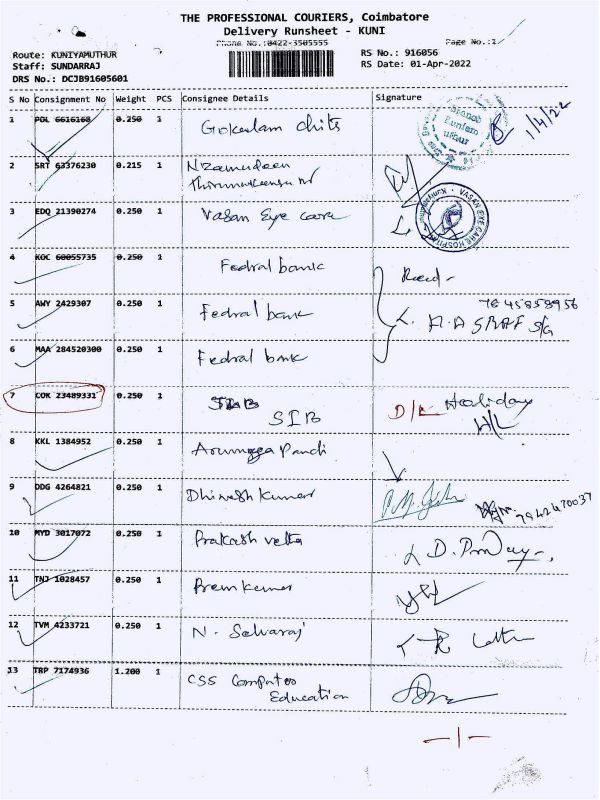 THE PROFESSIONAL COURIERS, Coimbatore
Delivery Runsheet - KUNI
Phone No.:0422-3505555 Page No.:1/
Route: KUNIYAMUTHUR RS No.: 916056
Staff: SUNDARRAJ RS Date: 01-Apr-2022
DRS No.: DCJB91605601
S No Consignment No Weight PCS Consignee Details Signature
1 PDL 6616168 0.250 1 Gokulam chits 1/4/22
2 SRT 63376230 0.215 1 Nizamudeen
3 EDQ 21390274 0.250 1 Vasan Eye care
VASAN EYE CARE HOSPITAL
4 KOC 60055735 0.250 1 Fedral bank
5 AWY 2429307 0.250 1 Fedral bank
6 MAA 284520300 0.250 1 Fedral bank
7 COK 23489331 0.250 1 SIB D/L Holiday
H/L
8 KKL 1384952 0.250 1 Arumugga Pandi
9 DDG 4264821 0.250 1 Dhinesh kumar
10 MYD 3017072 0.250 1 Prakash vetta
11 TNJ 1028457 0.250 1 Prem kumar
12 TVM 4233721 0.250 1 N. Selvaraj
13 TRP 7174936 1.200 1 CSS Computer
Education